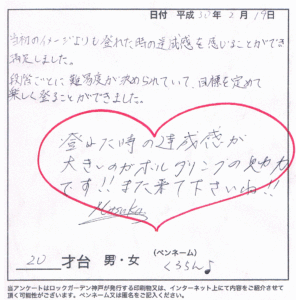 日付 平成30年2月19日
当初のイメージよりも登れた時の達成感を感じることができ
満足しました。
段階ごとに難易度が決められていて、目標を定めて
楽しく登ることができました。
登れた時の達成感が
大きいのがボルダリングの魅力
です!!また来て下さいね!!
20 才台 男・女 (ペンネーム)
くららん♪
当アンケートはロックガーデン神戸が発行する印刷物又は、インターネット上にて内容をご紹介させて
頂く可能性がございます。ペンネーム又は匿名をご記入ください。